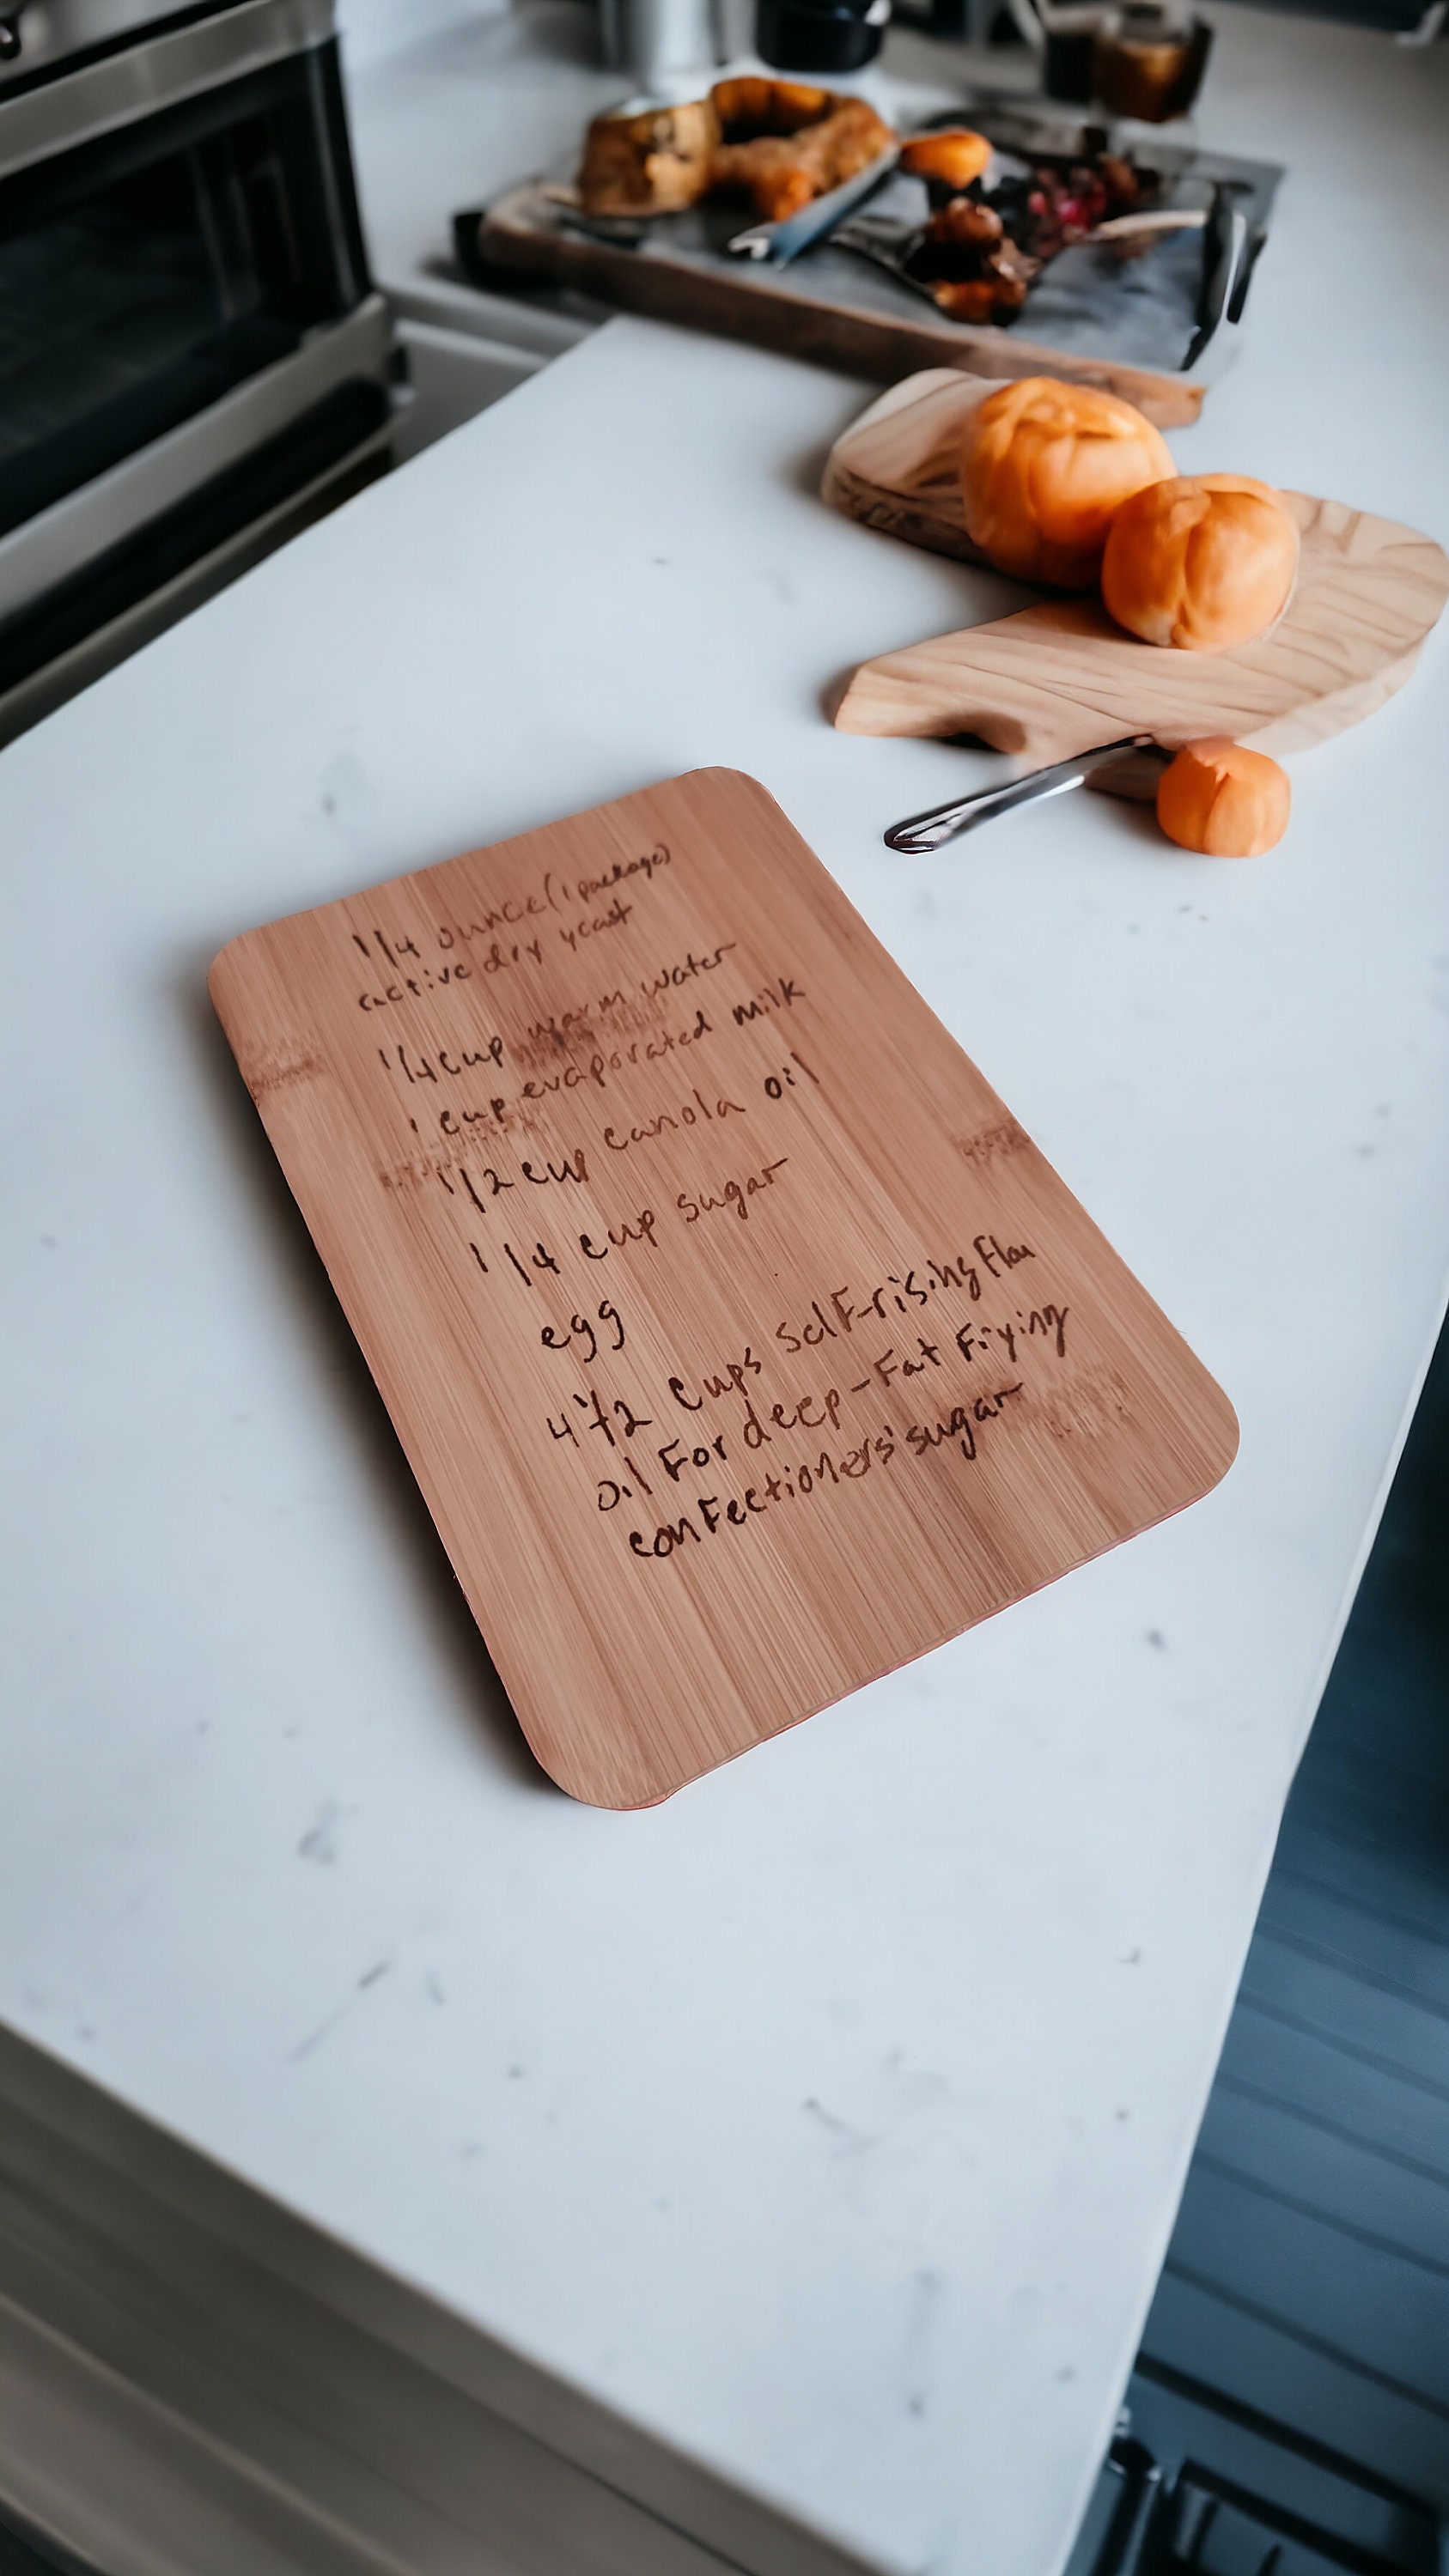 1/4 ounce (1 package)
active dry yeast
1/4 cup warm water
1 cup evaporated milk
1/2 cup canola oil
1/4 cup sugar
egg
4 1/2 cups self-rising flou
oil for deep-fat frying
confectioners' sugar